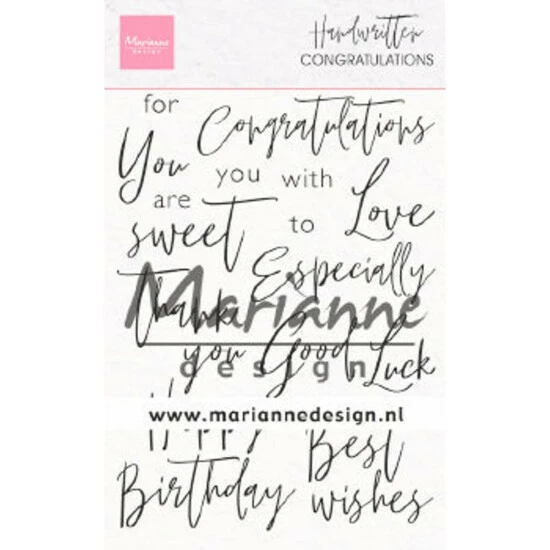 Marianne
DESIGN
Handwritten
CONGRATULATIONS
for
Congratulations
You
you with
are
Love
sweet
to
Especially
Thank
Marianne
you
Good
Luck
design
www.mariannedesign.nl
Happy
Best
Birthday
wishes